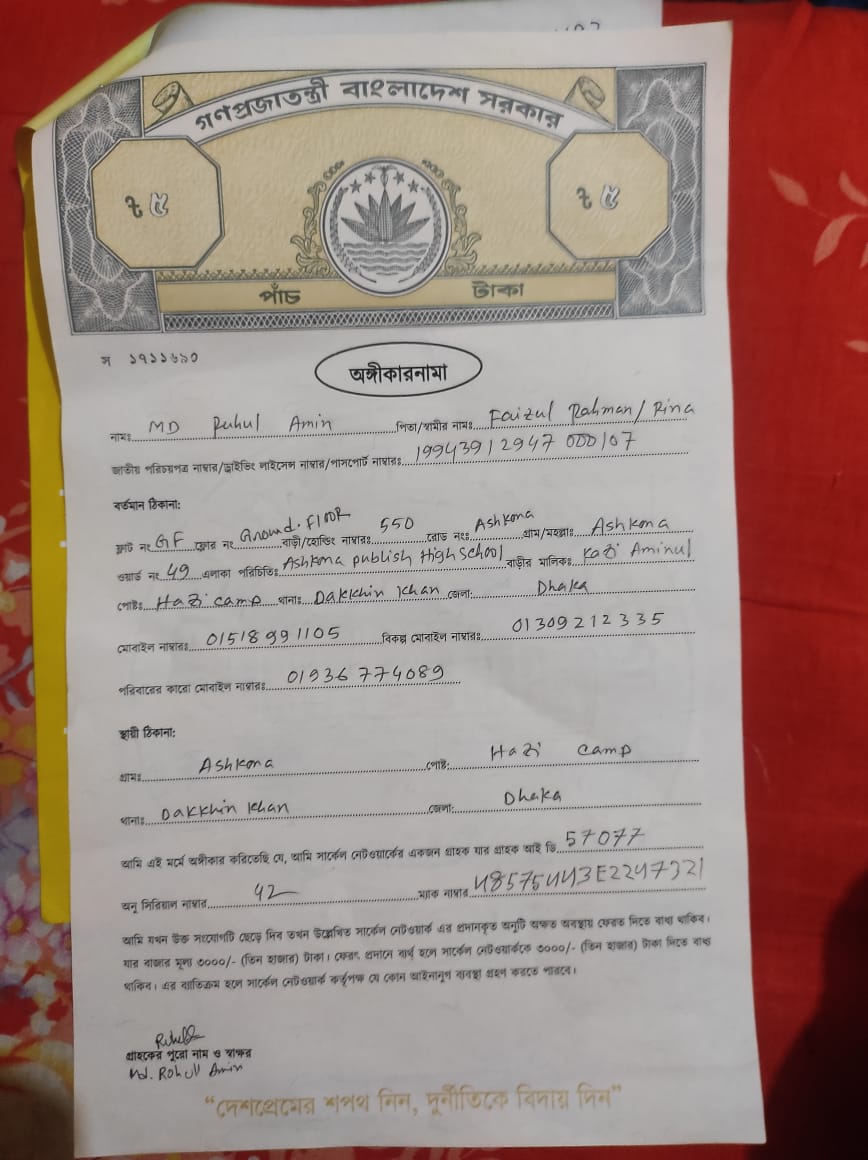 গণপ্রজাতন্ত্রী বাংলাদেশ সরকার
৳ ৫ ৳ ৫
পাঁচ টাকা
স ১৭১১৬৯০
অঙ্গীকারনামা
নামঃ MD Ruhul Amin পিতা/স্বামীর নামঃ Faizul Rahman/ Rina
জাতীয় পরিচয়পত্র নাম্বার/ড্রাইভিং লাইসেন্স নাম্বার/পাসপোর্ট নাম্বারঃ 19943912947 000107
বর্তমান ঠিকানা:
ফ্লাট নং GF ফ্লোর নং Ground. FlooR বাড়ী/হোল্ডিং নাম্বারঃ 550 রোড নংঃ Ashkona গ্রাম/মহল্লাঃ Ashkona
ওয়ার্ড নং 49 এলাকা পরিচিতিঃ Ashkona publish High school বাড়ীর মালিকঃ Kazi Aminul
পোষ্টঃ Hazi camp থানাঃ Dakkhin Khan জেলা: Dhaka
মোবাইল নাম্বারঃ 01518991105 বিকল্প মোবাইল নাম্বারঃ 01309212335
পরিবারের কারো মোবাইল নাম্বারঃ 01936774089
স্থায়ী ঠিকানা:
গ্রামঃ Ashkona পোষ্ট: Hazi camp
থানাঃ Dakkhin Khan জেলা: Dhaka
আমি এই মর্মে অঙ্গীকার করিতেছি যে, আমি সার্কেল নেটওয়ার্কের একজন গ্রাহক যার গ্রাহক আই ডি 57077
অনু সিরিয়াল নাম্বার 42 ম্যাক নাম্বার
আমি যখন উক্ত সংযোগটি ছেড়ে দিব তখন উল্লেখিত সার্কেল নেটওয়ার্ক এর প্রদানকৃত অনুটি অক্ষত অবস্থায় ফেরত দিতে বাধ্য থাকিব।
যার বাজার মূল্য ৩০০০/- (তিন হাজার) টাকা। ফেরৎ প্রদানে ব্যর্থ হলে সার্কেল নেটওয়ার্ককে ৩০০০/- (তিন হাজার) টাকা দিতে বাধ্য
থাকিব। এর ব্যতিক্রম হলে সার্কেল নেটওয়ার্ক কর্তৃপক্ষ যে কোন আইনানুগ ব্যবস্থা গ্রহণ করতে পারবে।
গ্রাহকের পুরো নাম ও স্বাক্ষর
Md. Rohull Amin
“দেশপ্রেমের শপথ নিন, দুর্নীতিকে বিদায় দিন”